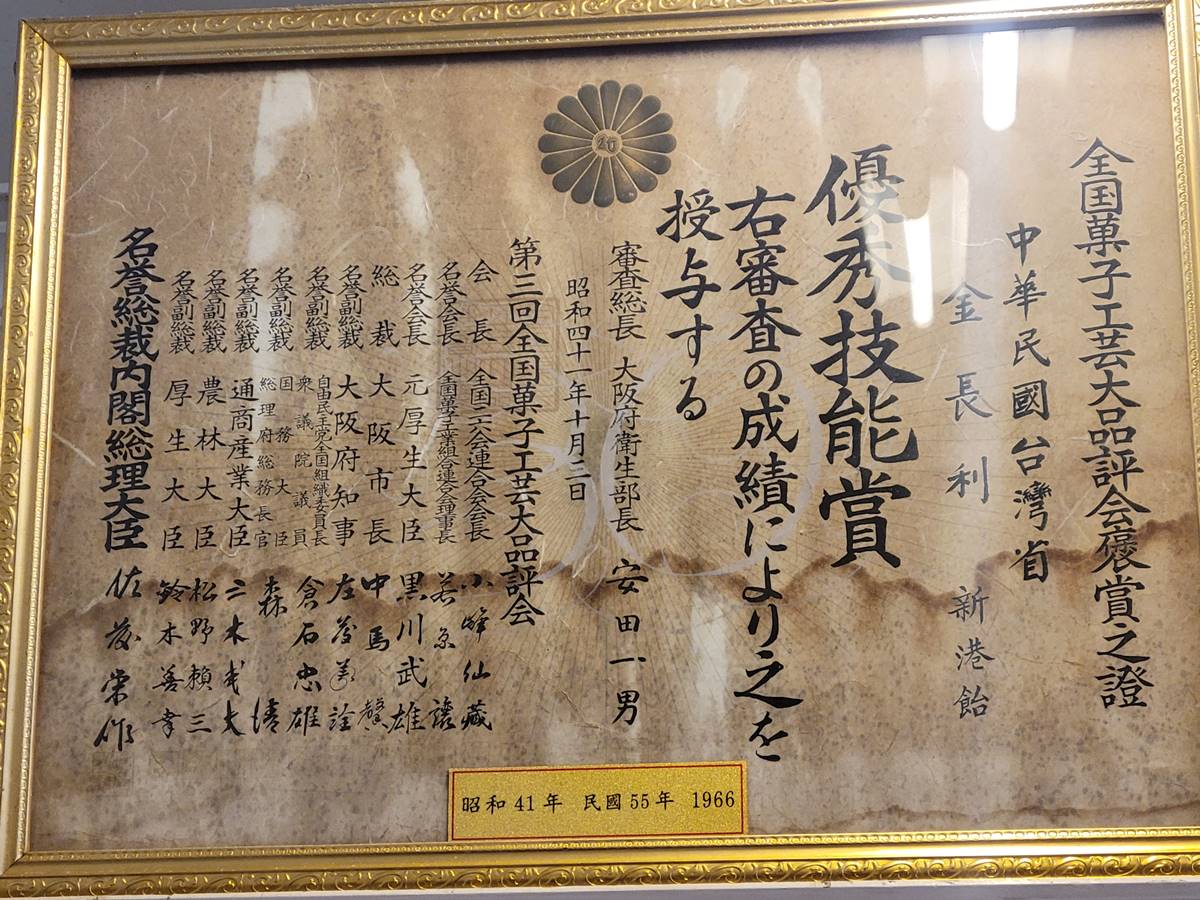 全国菓子工芸大品評会褒賞之證
中華民國台灣省
金長利 新港飴
優秀技能賞
右審査の成績により之を
授与する
審査総長 大阪府衛生部長 安田一男
昭和四十一年十月三日
第三回全国菓子工芸大品評会
会長 全国二六会連合会会長 小峰仙蔵
名誉会長 全国菓子工業組合連合会理事長 譲
名誉会長 元厚生大臣 黒川武雄
総裁 大阪市長 中馬馨
名誉副総裁 大阪府知事 左藤義詮
名誉副総裁 自由民主党全国組織委員長 衆議院議員 倉石忠雄
名誉副総裁 国務大臣 総理府総務長官 森清
名誉副総裁 通商産業大臣 三木武夫
名誉副総裁 農林大臣 松野頼三
名誉副総裁 厚生大臣 鈴木善幸
名誉総裁内閣総理大臣 佐藤栄作
昭和41年 民國55年 1966